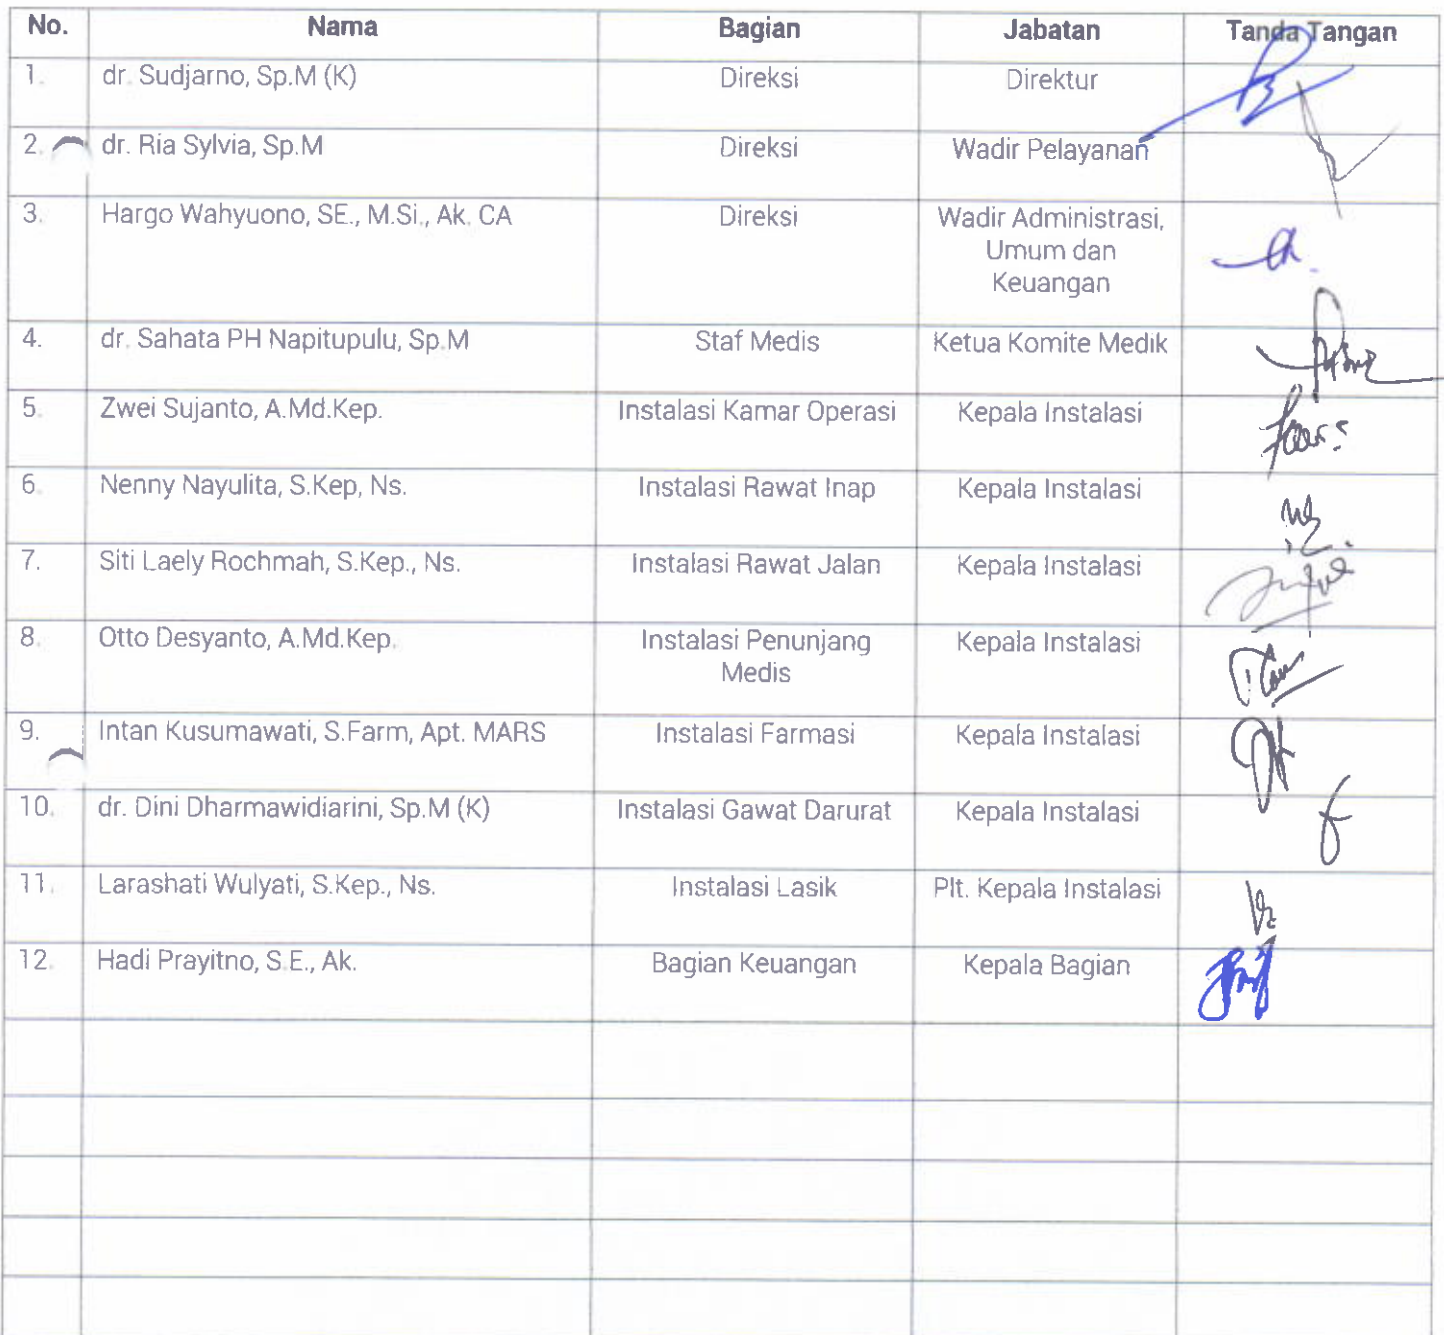 No. Nama Bagian Jabatan Tanda Tangan
1. dr. Sudjarno, Sp.M (K) Direksi Direktur
2. dr. Ria Sylvia, Sp.M Direksi Wadir Pelayanan
3. Hargo Wahyuono, SE., M.Si., Ak. CA Direksi Wadir Administrasi,
Umum dan
Keuangan
4. dr. Sahata PH Napitupulu, Sp.M Staf Medis Ketua Komite Medik
5. Zwei Sujanto, A.Md.Kep. Instalasi Kamar Operasi Kepala Instalasi
6. Nenny Nayulita, S.Kep, Ns. Instalasi Rawat Inap Kepala Instalasi
7. Siti Laely Rochmah, S.Kep., Ns. Instalasi Rawat Jalan Kepala Instalasi
8. Otto Desyanto, A.Md.Kep. Instalasi Penunjang Kepala Instalasi
Medis
9. Intan Kusumawati, S.Farm, Apt. MARS Instalasi Farmasi Kepala Instalasi
10. dr. Dini Dharmawidiarini, Sp.M (K) Instalasi Gawat Darurat Kepala Instalasi
11. Larashati Wulyati, S.Kep., Ns. Instalasi Lasik Plt. Kepala Instalasi
12. Hadi Prayitno, S.E., Ak. Bagian Keuangan Kepala Bagian